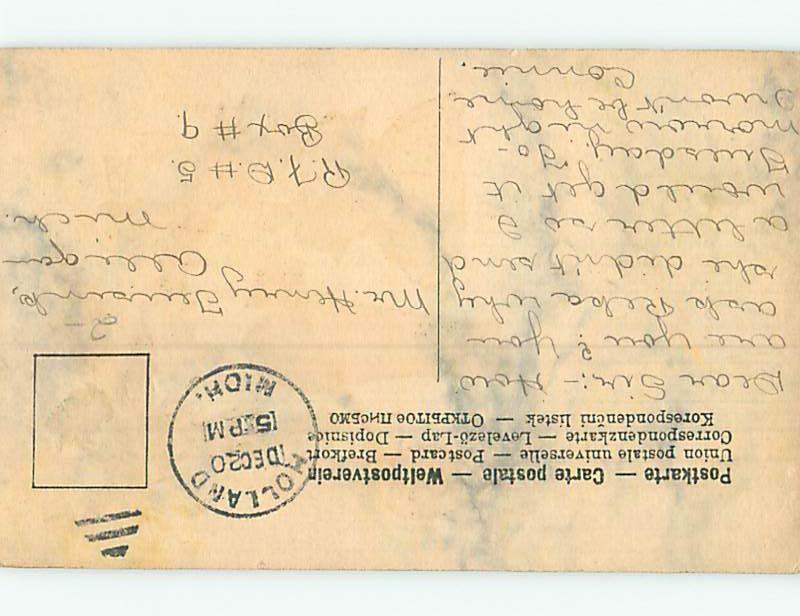 Postkarte — Carte postale — Weltpostverein
Union postale universelle — Postcard — Brefkort
Correspondenzkarte — Levelező-Lap — Dopisnice
Korespondenční lístek — Открытое письмо
HOLLAND
DEC 20
5 PM
MICH.
Dear Sir:- How
are you? You
ask Reka why
she didn't send
a letter so I
would get it
Tuesday. To-
morrow night
I won't be home
Connie.
2-
Mr. Henry
Allegan
Mich.
R.F.D. # 5.
Box # 9